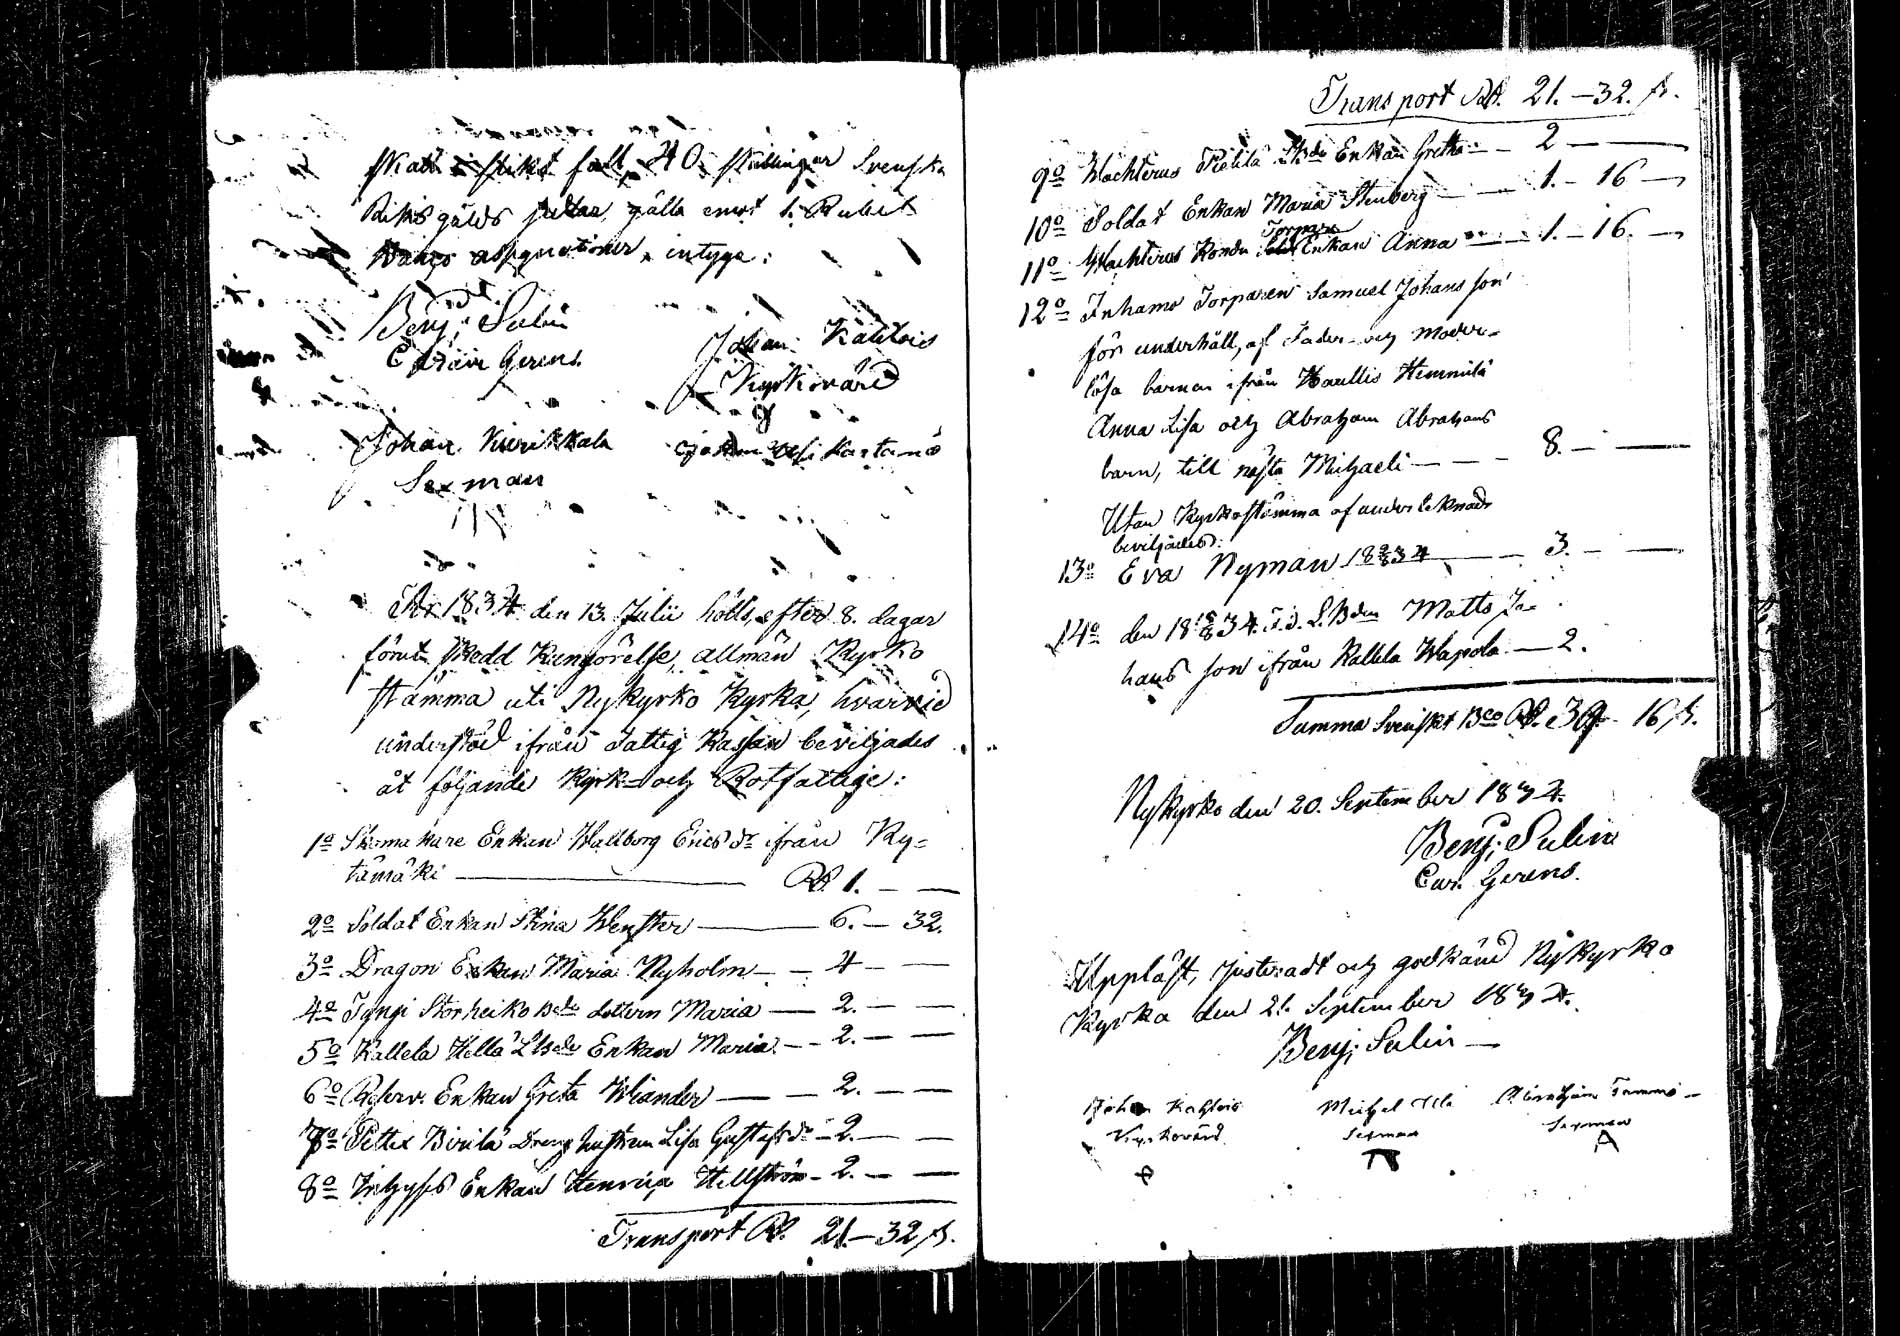 skall i slikt fall, 40 skillingar Svenska
Riksgälds sedlar, gälla emot 1. Rubel
Banco assignationer, intyga:
Benj: Salin
Gerens.
Johan
Kyrkovärd
Johan Kurikkala
Sexman
År 1834 den 13. Julii hölls, efter 8. dagar
förut skedd Kungörelse, allmän Kyrko
stämma uti Nykyrko Kyrka, hvarvid
understöd ifrån Fattig Kassan beviljades
åt följande Kyrk- och Rotfattige:
1o Skomakare Enkan Wallborg Erics dr ifrån Ky-
tämäki — Rd. 1. — —
2o Soldat Enkan Stina Wenster — 6. — 32.
3o Dragon Enkan Maria Nyholm — 4 — —
4o Storheiko Bde dottern Maria — 2. — —
5o Kallela Hella LBde Enkan Maria — 2. — —
6o Reserv. Enkan Greta Wiander — 2. — —
7o Lisa Gustafs dr — 2. — —
8o Enkan Henrica Hellström — 2. — —
Transport Rd. 21. — 32 s.
Transport Rd. 21. — 32. s.
9o Wachterus Pietilä Enkan Greta — 2 —
10o Soldat Enkan Maria Stenberg — 1. — 16 —
Torpare
11o Wachterus Enkan Anna — 1. — 16. —
12o Inhamo Torparen Samuel Johansson
för underhåll, af Fader- och Moder-
lösa barnen ifrån Haullis Hemmilä
Anna Lisa och Abraham Abrahams
barn, till nästa Michaeli — 8. — —
Utan Kyrkostämma af undertecknade
beviljades:
13o Eva Nyman — 3. — —
14o den Matts Jo-
hans son ifrån Kallela Wapola — 2.
Summa Svenskt Bco Rd. 39 — 16 s.
Nykyrko den 20. September 1834.
Benj: Salin
Cur. Gerens.
Uppläst, justeradt och godkänd Nykyrko
Kyrka den 21. September 1834.
Benj: Salin —
Johan
Kyrkovärd
Michel
Sexman
Sexman